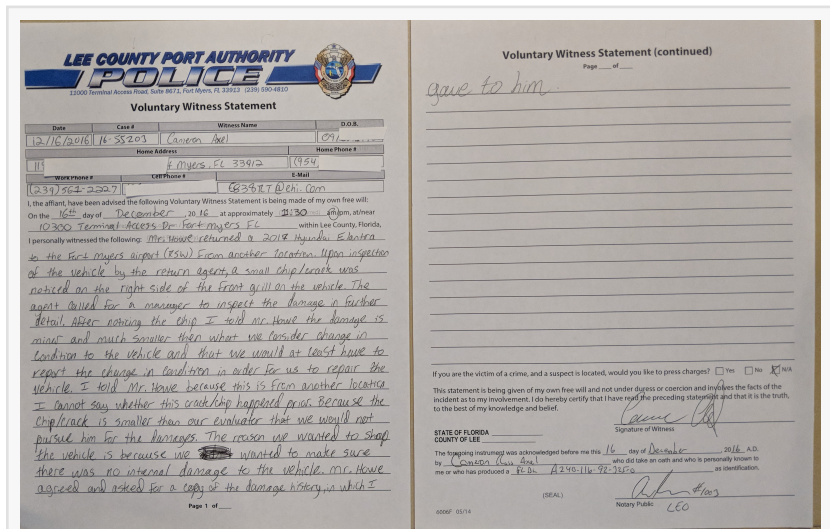 LEE COUNTY PORT AUTHORITY
POLICE
11000 Terminal Access Road, Suite 8671, Fort Myers, FL 33913 (239) 590-4810
Voluntary Witness Statement
Date Case # Witness Name D.O.B.
12/16/2016 16-55203 Cameron Axel 09/
Home Address Home Phone #
11 Myers, FL 33912 (954
Work Phone # Cell Phone # E-Mail
(239) 561-2227 G838RT@ehi.com
I, the affiant, have been advised the following Voluntary Witness Statement is being made of my own free will:
On the 16th day of December, 2016 at approximately 11:30 am/pm, at/near
10300 Terminal Access Dr Fort myers FL within Lee County, Florida,
I personally witnessed the following: Mr. Howe returned a 2017 Hyundai Elantra
to the Fort Myers airport (RSW) From another location. Upon inspection
of the vehicle by the return agent, a small chip/crack was
noticed on the right side of the front grill on the vehicle. The
agent called for a manager to inspect the damage in further
detail. After noticing the chip I told Mr. Howe the damage is
minor and much smaller then what we consider change in
condition to the vehicle and that we would at least have to
report the change in condition in order for us to repair the
vehicle. I told Mr. Howe because this is from another location
I cannot say whether this crack/chip happened prior. Because the
chip/crack is smaller than our evaluator that we would not
pursue him for the damages. The reason we wanted to shop
the vehicle is because we wanted to make sure
there was no internal damage to the vehicle. Mr. Howe
agreed and asked for a copy of the damage history, in which I
Page 1 of
Voluntary Witness Statement (continued)
Page of
gave to him
If you are the victim of a crime, and a suspect is located, would you like to press charges? Yes No N/A
This statement is being given of my own free will and not under duress or coercion and involves the facts of the
incident as to my involvement. I do hereby certify that I have read the preceding statement and that it is the truth,
to the best of my knowledge and belief.
Signature of Witness
STATE OF FLORIDA
COUNTY OF LEE
The foregoing instrument was acknowledged before me this 16 day of December, 2016 A.D.
by Cameron Axel who did take an oath and who is personally known to
me or who has produced a FL DL A240-116-92-3250 as identification.
(SEAL)
#1003
Notary Public LEO
6006F 05/14